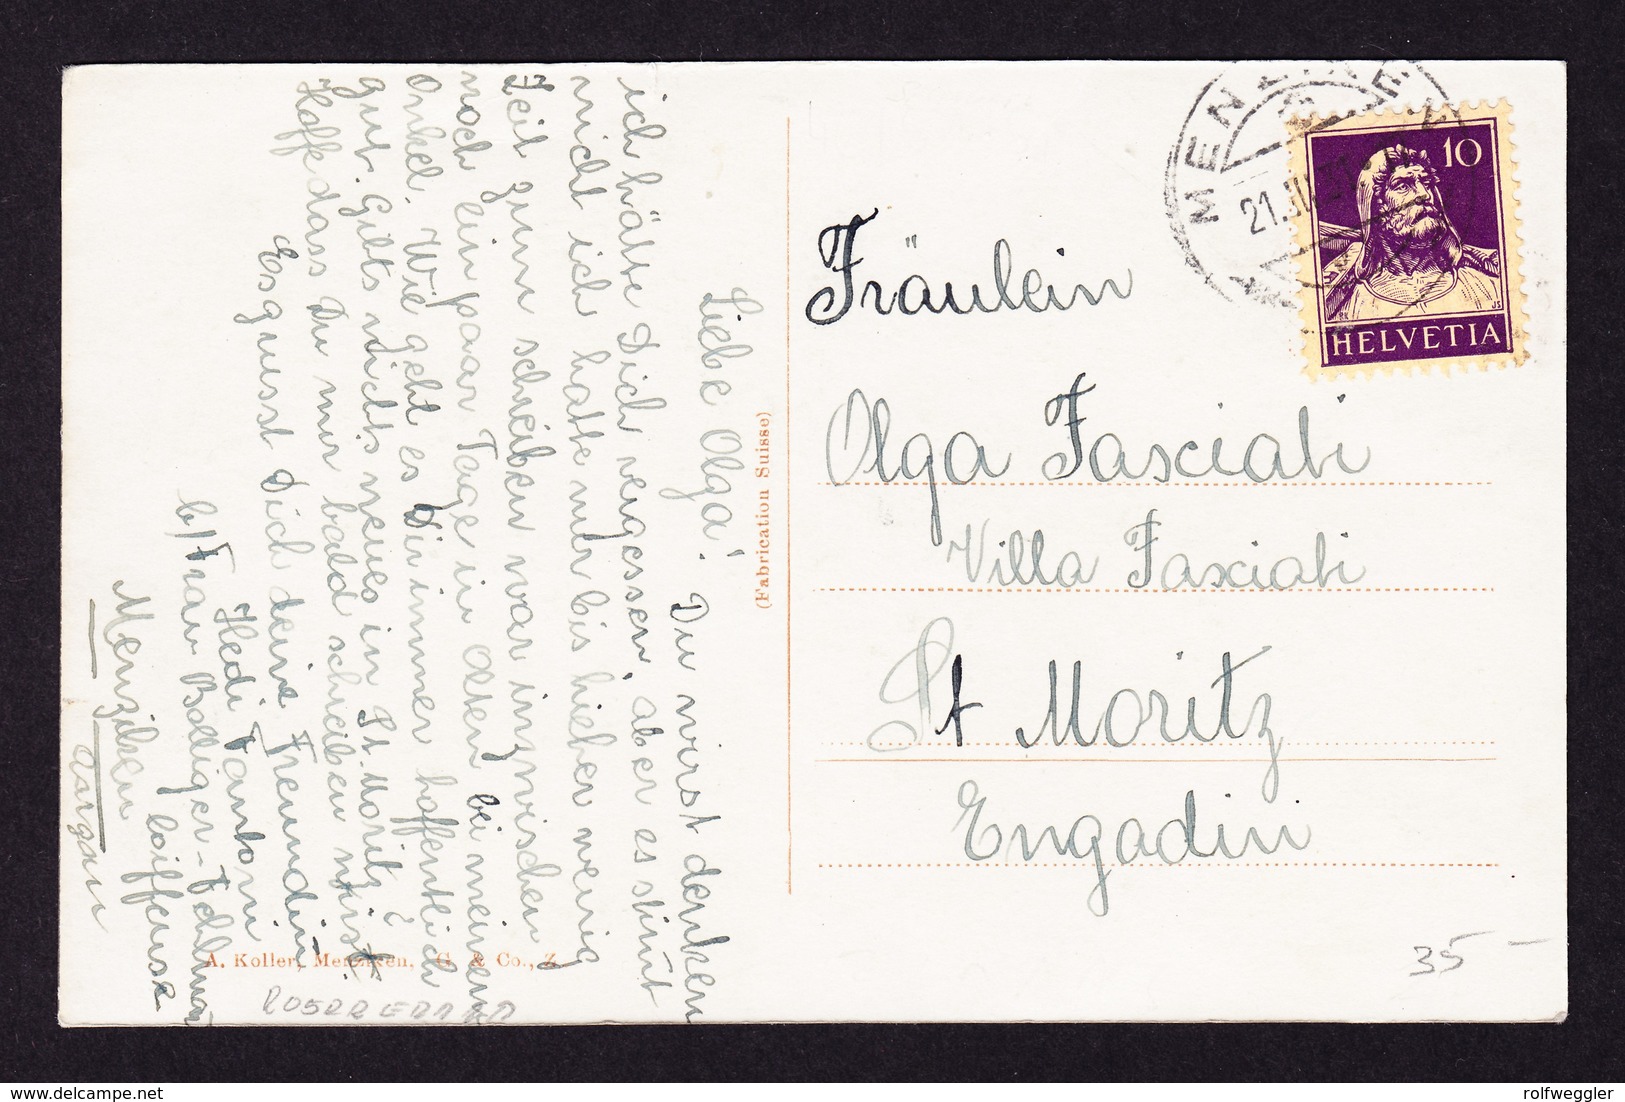 Liebe Olga!
Du wirst denken
ich hätte Dich vergessen, aber es stimt
nicht ich hatte nur bis hieher wenig
Zeit zum schreiben war inzwischen
noch ein paar Tage in Olten bei meinem
Onkel. Wie geht es Dir immer hoffentlich
gut. Gibts nichts neues in St. Moritz?
Hoffe dass Du mir bald schreiben wirst
Es grüsst Dich deine Freundin
Hedi Fantoni
b/Frau Bolliger-
Coiffeuse
Menziken
Aargau
(Fabrication Suisse)
A. Koller, Menziken. G. & Co., Z.
Fräulein
Olga Fasciati
Villa Fasciati
St Moritz
Engadin
10
HELVETIA
MENZIKEN
21.
35 –
rolfweggler